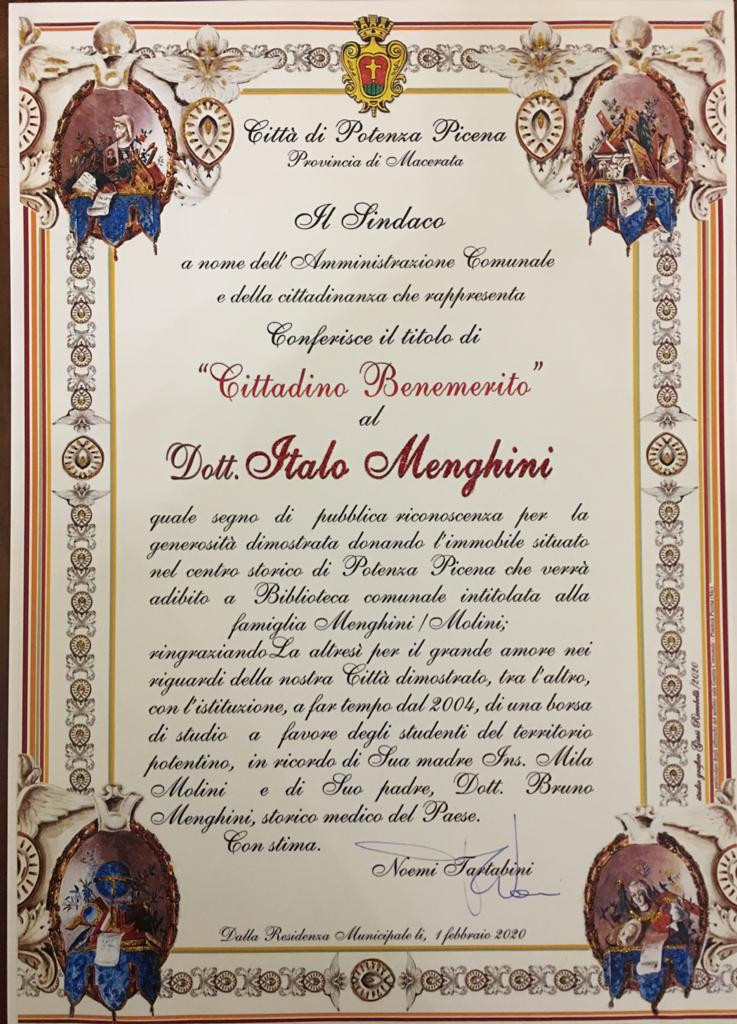 Città di Potenza Picena
Provincia di Macerata
Il Sindaco
a nome dell'Amministrazione Comunale
e della cittadinanza che rappresenta
Conferisce il titolo di
"Cittadino Benemerito"
al
Dott. Italo Menghini
quale segno di pubblica riconoscenza per la
generosità dimostrata donando l'immobile situato
nel centro storico di Potenza Picena che verrà
adibito a Biblioteca comunale intitolata alla
famiglia Menghini / Molini;
ringraziandoLa altresì per il grande amore nei
riguardi della nostra Città dimostrato, tra l'altro,
con l'istituzione, a far tempo dal 2004, di una borsa
di studio a favore degli studenti del territorio
potentino, in ricordo di Sua madre Ins. Mila
Molini e di Suo padre, Dott. Bruno
Menghini, storico medico del Paese.
Con stima.
Noemi Tartabini
Dalla Residenza Municipale li, 1 febbraio 2020
studio grafico
/2020